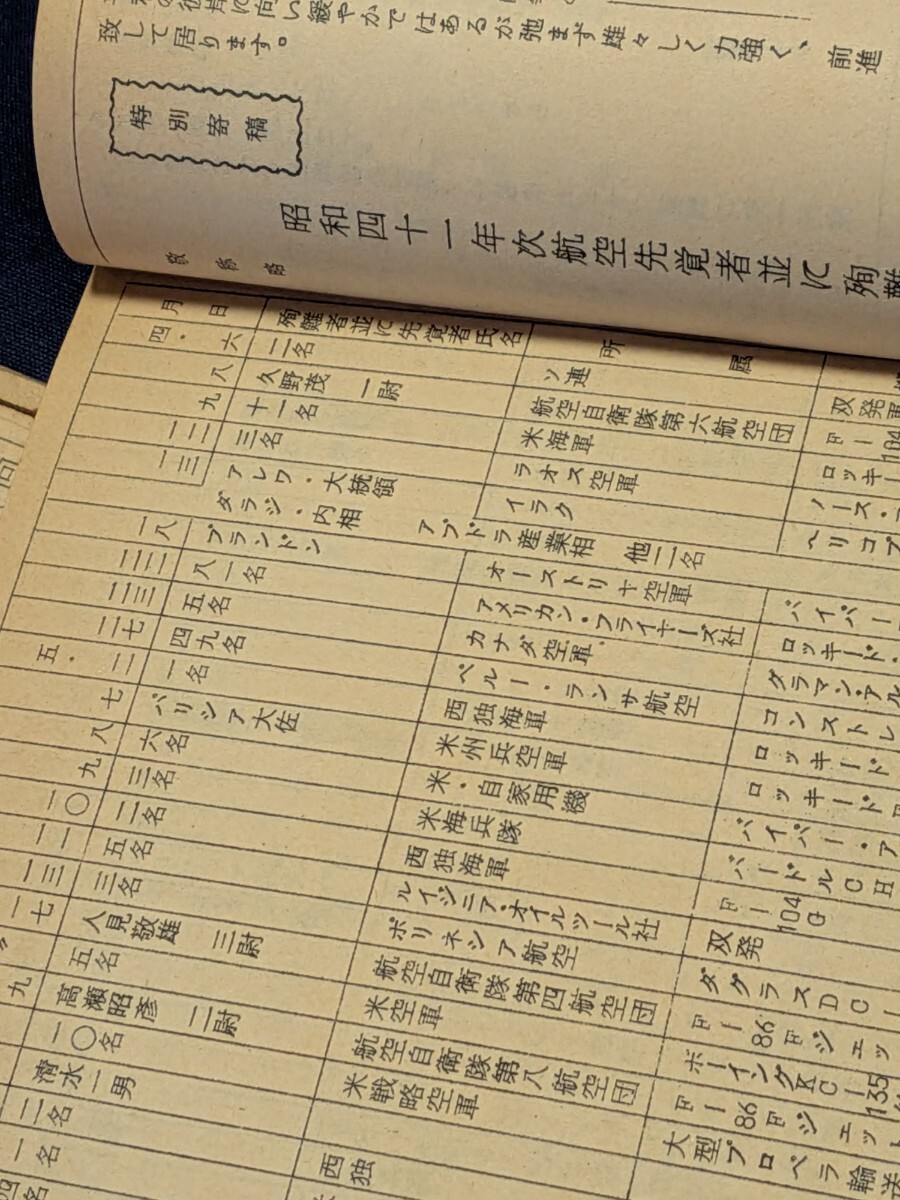 の彼岸に向い緩やかではあるが弛まず雄々しく力強く、前進
致して居ります。
特別寄稿
昭和四十一年次航空先覚者並に殉難
敬称略
月日 殉難者並に先覚者氏名 所属
四・六 二名 ソ連 双発
八 久野茂 一尉 航空自衛隊第六航空団 F-104
九 十一名 米海軍 ロッキー
三名 ラオス空軍 ノース・
一三 アレワ・大統領 イラク ヘリコプ
ダラジ・内相 アブドラ産業相 他二名
一八 ブランドン オーストリヤ空軍 パイパー
八一名 アメリカン・フライヤーズ社 ロッキード・
五名 カナダ空軍 グラマン・アル
二七 四九名 ペルー・ランサ航空 コンストレ
五・二 一名 西独海軍 ロッキード
七 バリシア大佐 米州兵空軍 ロッキード
八 六名 米・自家用機 パイパー・ア
九 三名 米海兵隊 バードルCH
一〇 二名 西独海軍 F-104G
五名 ルイジニア・オイルツール社 双発
一三 三名 ポリネシア航空 ダグラスDC-
一七 人見敬雄 三尉 航空自衛隊第四航空団 F-86Fジェッ
五名 米空軍 ボーイングKC-135
九 高瀬昭彦 二尉 航空自衛隊第八航空団 F-86Fジェット
一〇名 米戦略空軍 大型プロペラ輸送
清水一男
二名 西独
一名
四名